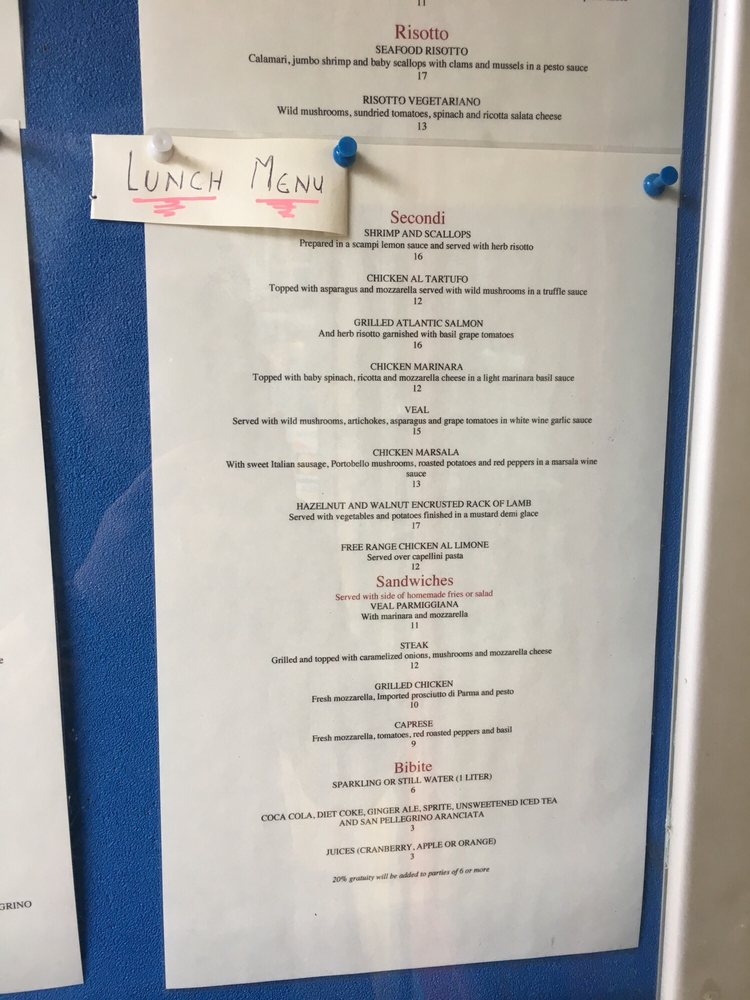 11
Risotto
SEAFOOD RISOTTO
Calamari, jumbo shrimp and baby scallops with clams and mussels in a pesto sauce
17
RISOTTO VEGETARIANO
Wild mushrooms, sundried tomatoes, spinach and ricotta salata cheese
13
LUNCH MENU
Secondi
SHRIMP AND SCALLOPS
Prepared in a scampi lemon sauce and served with herb risotto
16
CHICKEN AL TARTUFO
Topped with asparagus and mozzarella served with wild mushrooms in a truffle sauce
12
GRILLED ATLANTIC SALMON
And herb risotto garnished with basil grape tomatoes
16
CHICKEN MARINARA
Topped with baby spinach, ricotta and mozzarella cheese in a light marinara basil sauce
12
VEAL
Served with wild mushrooms, artichokes, asparagus and grape tomatoes in white wine garlic sauce
15
CHICKEN MARSALA
With sweet Italian sausage, Portobello mushrooms, roasted potatoes and red peppers in a marsala wine
sauce
13
HAZELNUT AND WALNUT ENCRUSTED RACK OF LAMB
Served with vegetables and potatoes finished in a mustard demi glace
17
FREE RANGE CHICKEN AL LIMONE
Served over capellini pasta
12
Sandwiches
Served with side of homemade fries or salad
VEAL PARMIGGIANA
With marinara and mozzarella
11
STEAK
Grilled and topped with caramelized onions, mushrooms and mozzarella cheese
12
GRILLED CHICKEN
Fresh mozzarella, Imported prosciutto di Parma and pesto
10
CAPRESE
Fresh mozzarella, tomatoes, red roasted peppers and basil
9
Bibite
SPARKLING OR STILL WATER (1 LITER)
6
COCA COLA, DIET COKE, GINGER ALE, SPRITE, UNSWEETENED ICED TEA
AND SAN PELLEGRINO ARANCIATA
3
JUICES (CRANBERRY, APPLE OR ORANGE)
3
20% gratuity will be added to parties of 6 or more
GRINO